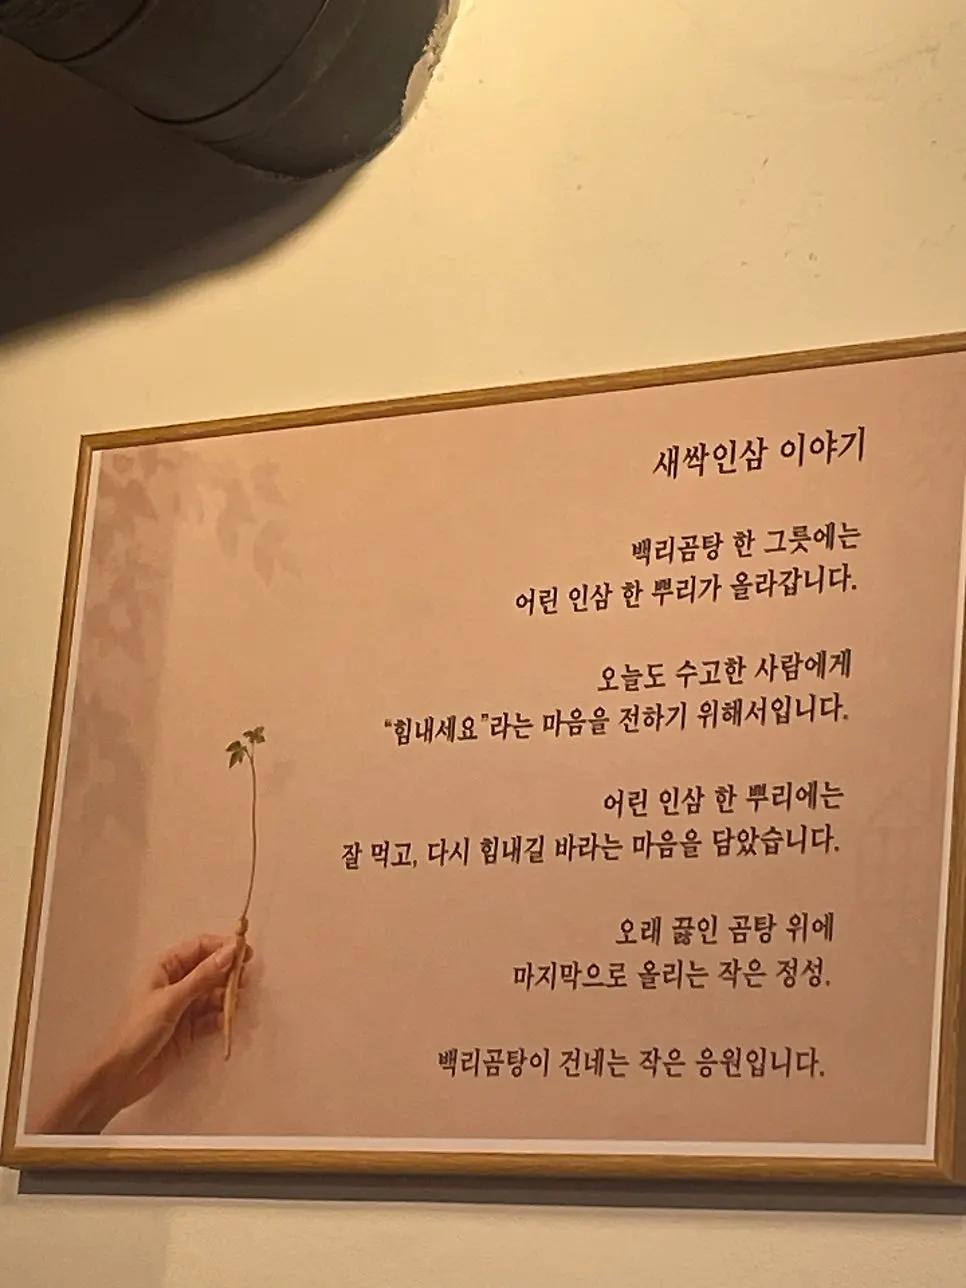 새싹인삼 이야기
백리곰탕 한 그릇에는
어린 인삼 한 뿌리가 올라갑니다.
오늘도 수고한 사람에게
“힘내세요”라는 마음을 전하기 위해서입니다.
어린 인삼 한 뿌리에는
잘 먹고, 다시 힘내길 바라는 마음을 담았습니다.
오래 끓인 곰탕 위에
마지막으로 올리는 작은 정성.
백리곰탕이 건네는 작은 응원입니다.